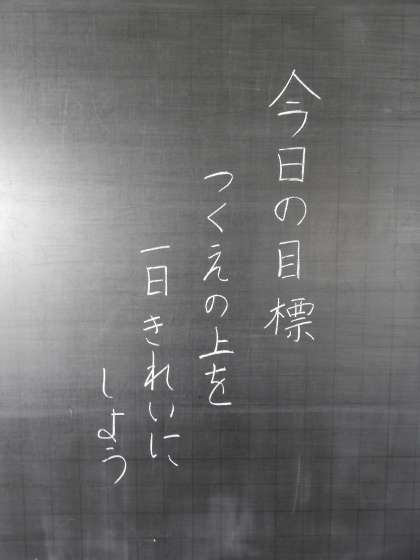 今日の目標
つくえの上を
一日きれいに
しよう